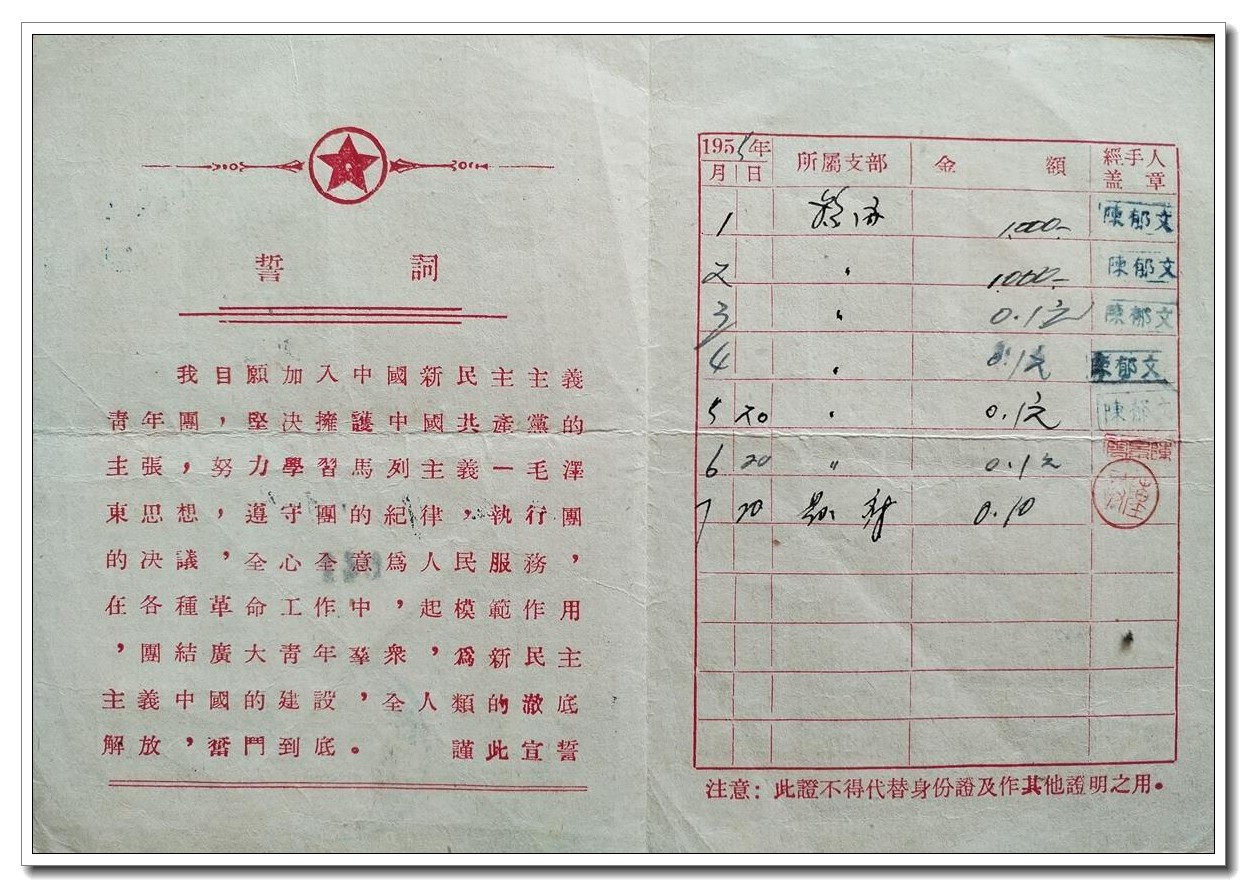 誓 詞
我自願加入中國新民主主義
青年團，堅決擁護中國共產黨的
主張，努力學習馬列主義—毛澤
東思想，遵守團的紀律，執行團
的決議，全心全意爲人民服務，
在各種革命工作中，起模範作用
，團結廣大青年羣衆，爲新民主
主義中國的建設，全人類的澈底
解放，奮鬥到底。 謹此宣誓
1955年 月 日 所屬支部 金 額 經手人盖章
1 1000- 陳郁文
2 〃 1000- 陳郁文
3 〃 0.1元 陳郁文
4 〃 0.1元 陳郁文
5 20 〃 0.1元 陳郁文
6 20 〃 0.1元
7 20 0.10
注意：此證不得代替身份證及作其他證明之用。